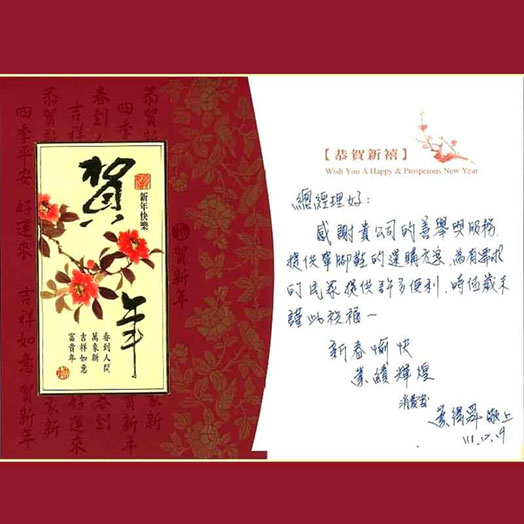 恭賀新禧
四季平安
吉祥如意
春到人間
好運來
賀新年
賀年
新年快樂
春到人間
萬象新
吉祥如意
富貴年
【恭賀新禧】
Wish You A Happy & Prosperous New Year
總經理好：
感謝貴公司的善舉與服務
提供單腳鞋的選購方案，為有需求
的民眾提供許多便利，時值歲末
謹此祝福～
新春愉快
業績輝煌
消費者
敬上
111.12.19